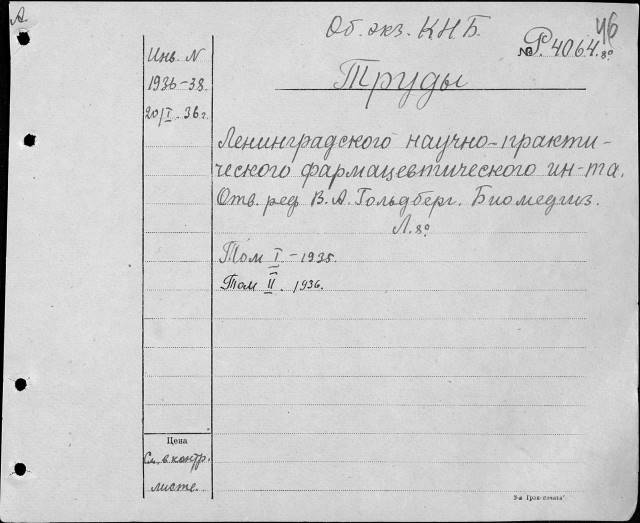 А
Об. экз. КНБ.
46
№ Р. 4064. 8º
Инв. N
1936-38.
20/I - 36 г.
Труды
Ленинградского научно-практи-
ческого фармацевтического ин-та.
Отв. ред В. А. Гольдберг. Биомедгиз.
Л. 8º
Том I - 1935.
Том II. 1936.
Цена
См. в контр.
листе.